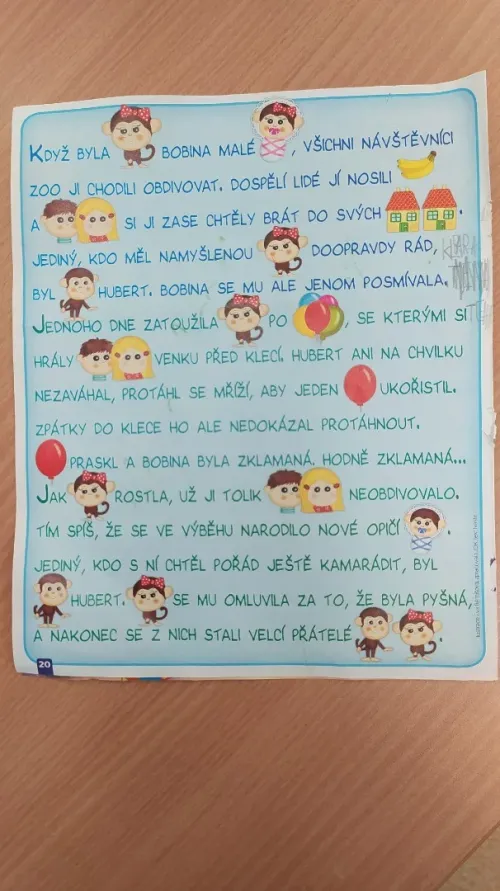 KDYŽ BYLA BOBINA MALÉ , VŠICHNI NÁVŠTĚVNÍCI
ZOO JI CHODILI OBDIVOVAT. DOSPĚLÍ LIDÉ JÍ NOSILI
A SI JI ZASE CHTĚLY BRÁT DO SVÝCH .
JEDINÝ, KDO MĚL NAMYŠLENOU DOOPRAVDY RÁD,
BYL HUBERT. BOBINA SE MU ALE JENOM POSMÍVALA.
JEDNOHO DNE ZATOUŽILA PO , SE KTERÝMI SI
HRÁLY VENKU PŘED KLECÍ. HUBERT ANI NA CHVILKU
NEZAVÁHAL, PROTÁHL SE MŘÍŽÍ, ABY JEDEN UKOŘISTIL.
ZPÁTKY DO KLECE HO ALE NEDOKÁZAL PROTÁHNOUT.
PRASKL A BOBINA BYLA ZKLAMANÁ. HODNĚ ZKLAMANÁ...
JAK ROSTLA, UŽ JI TOLIK NEOBDIVOVALO.
TÍM SPÍŠ, ŽE SE VE VÝBĚHU NARODILO NOVÉ OPIČÍ .
JEDINÝ, KDO S NÍ CHTĚL POŘÁD JEŠTĚ KAMARÁDIT, BYL
HUBERT. SE MU OMLUVILA ZA TO, ŽE BYLA PYŠNÁ,
A NAKONEC SE Z NICH STALI VELCÍ PŘÁTELÉ .
20